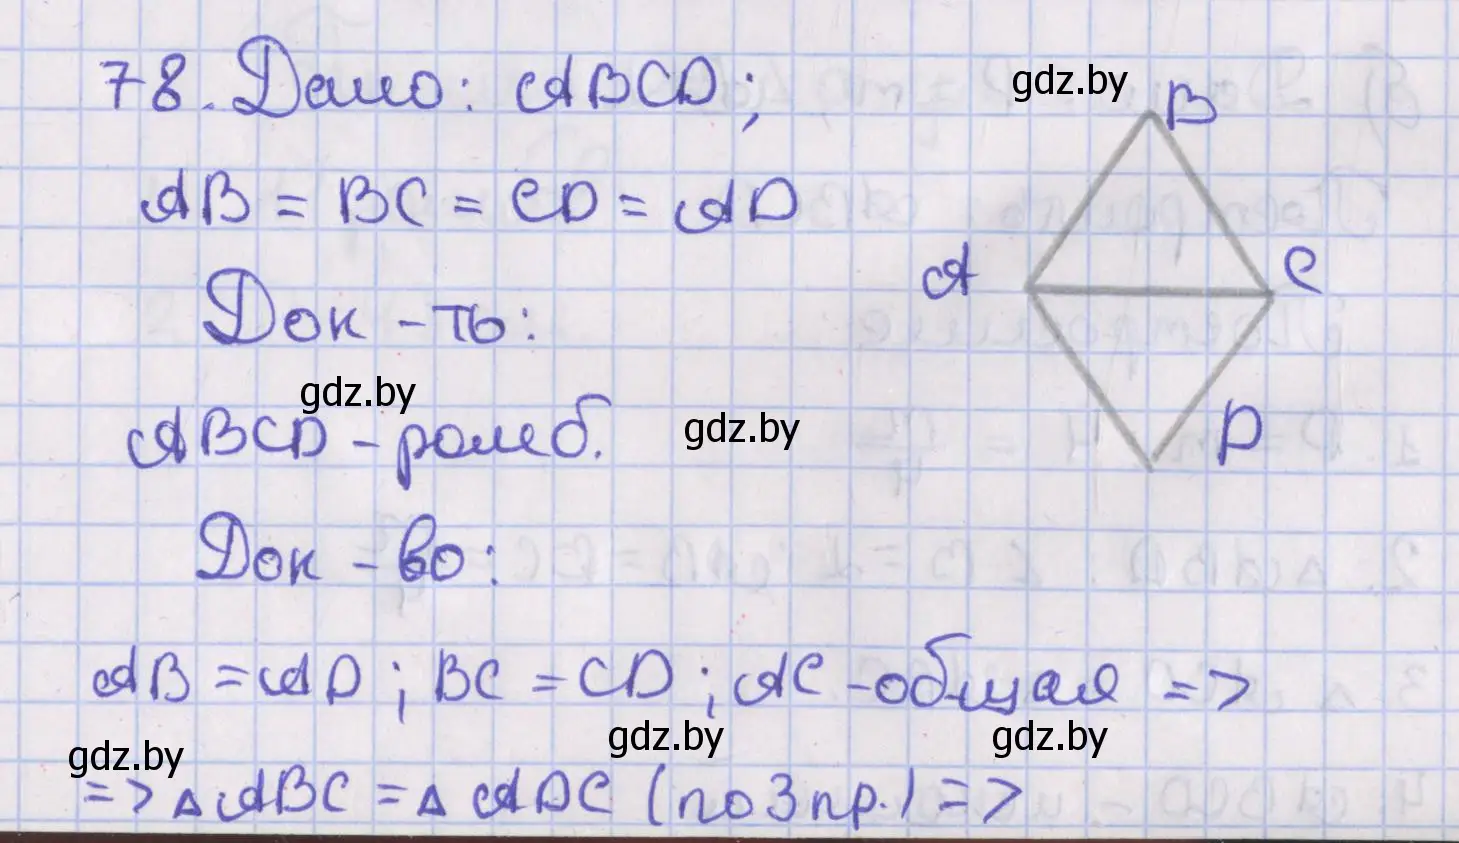 78. Дано: ABCD;
gdz.by
B
AB = BC = CD = AD
A
C
Док-ть:
gdz.by
ABCD - ромб.
gdz.by
D
Док-во:
AB = AD; BC = CD; AC - общая =>
gdz.by
gdz.by
gdz.by
=> △ ABC = △ ADC (по 3 пр.) =>